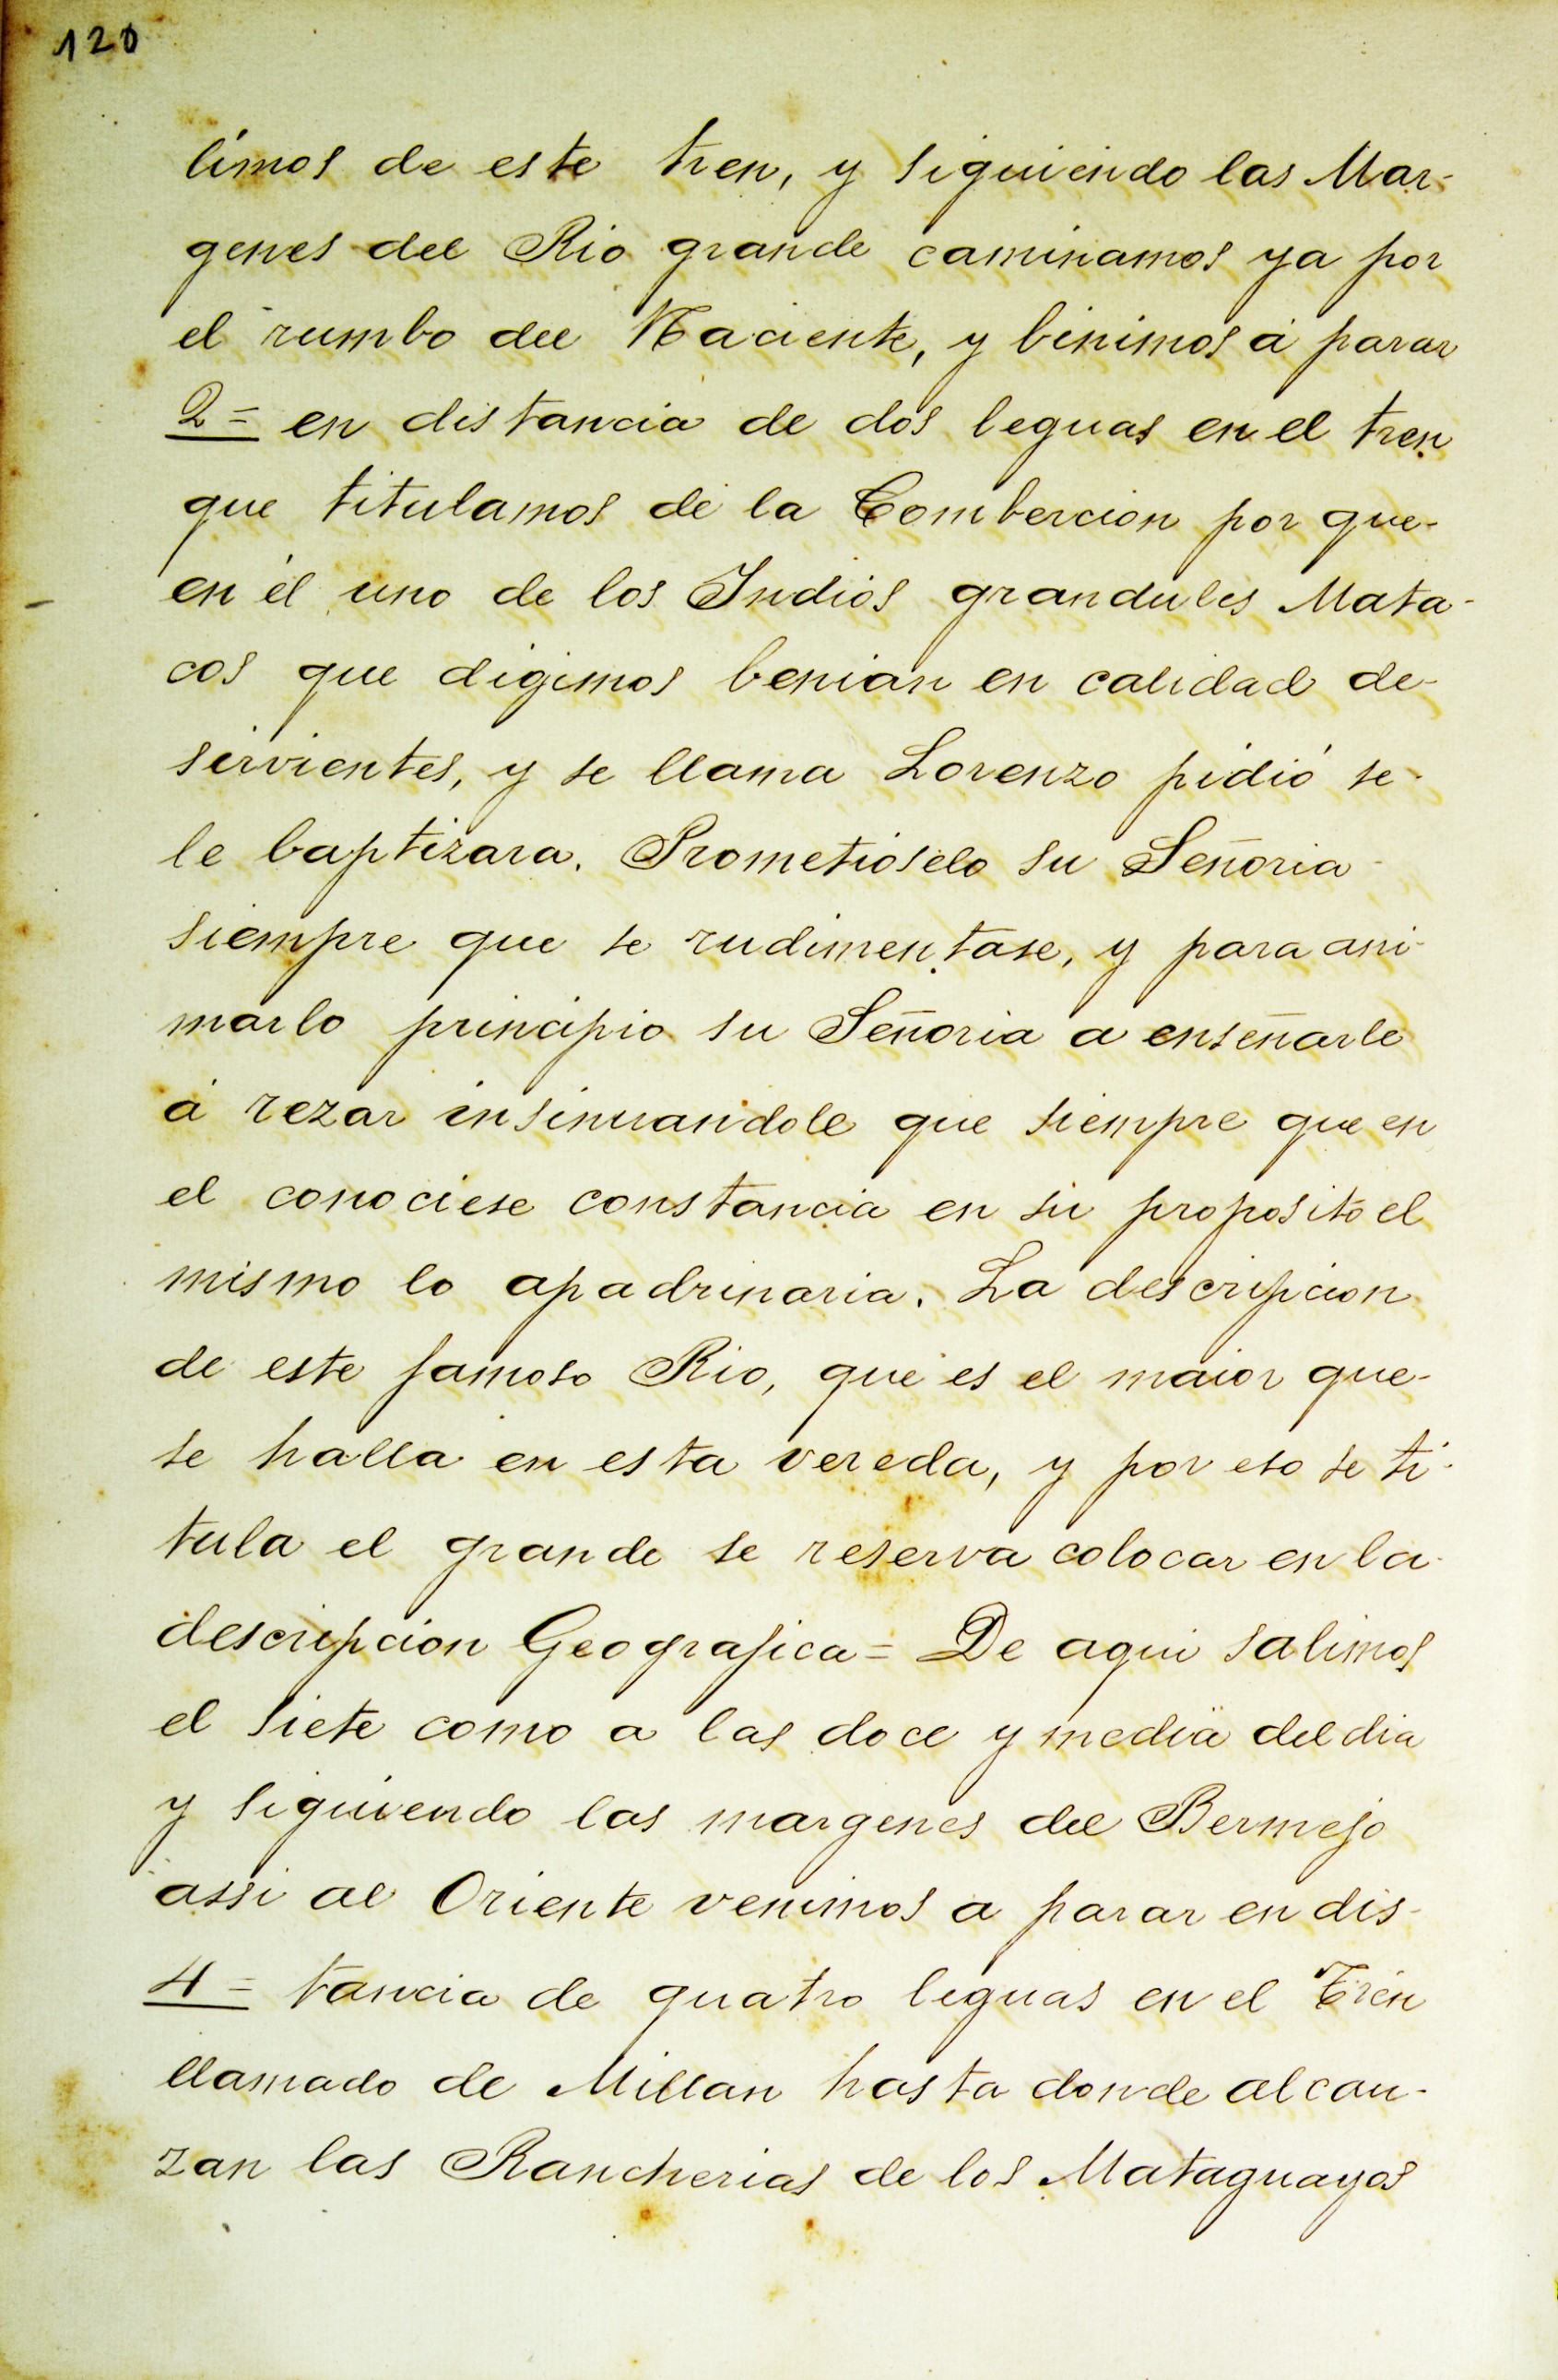 120
limos de este tren, y siguiendo las Mar-
genes del Rio grande caminamos ya por
el rumbo del Naciente, y binimos á parar
2= en distancia de dos leguas en el tren
que titulamos de la Combercion por que-
en él uno de los Indios grandules Mata-
cos que digimos benian en calidad de-
sirvientes, y se llama Lorenzo pidió se-
le baptizara. Prometioselo su Señoria-
siempre que se rudimentase, y para ani-
marlo principio su Señoria a enseñarle
á rezar insinuandole que siempre que en
el conociese constancia en su proposito el
mismo lo apadrinaria. La descripcion
de este famoso Rio, que es el maior que-
se halla en esta vereda, y por eso se ti-
tula el grande se reserva colocar en la-
descripcion Geografica= De aqui salimos
el siete como a las doce y media del dia
y siguiendo las margenes del Bermejo
assi al Oriente venimos a parar en dis-
4= tancia de quatro leguas en el Tren
llamado de Millan hasta donde alcan-
zan las Rancherias de los Mataguayos